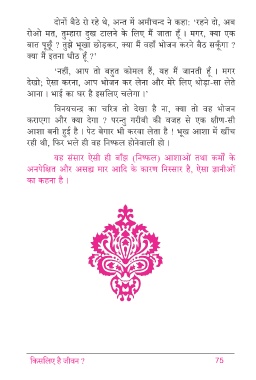 दोनों बैठे रो रहे थे, अन्त में अमीचन्द ने कहा: 'रहने दो, अब
रोओ मत, तुम्हारा दुख टालने के लिए मैं जाता हूँ। मगर, क्या एक
बात पूछूँ ? तुझे भूखा छोड़कर, क्या मैं वहाँ भोजन करने बैठ सकूँगा ?
क्या मैं इतना धीठ हूँ ?'
'नहीं, आप तो बहुत कोमल हैं, वह मैं जानती हूँ । मगर
देखो; ऐसा करना, आप भोजन कर लेना और मेरे लिए थोड़ा-सा लेते
आना। भाई का घर है इसलिए चलेगा।'
विनयचन्द्र का चरित्र तो देखा है ना, क्या तो वह भोजन
कराएगा और क्या देगा ? परन्तु गरीबी की वजह से एक क्षीण-सी
आशा बनी हुई है। पेट बेगार भी करवा लेता है ! भूख आशा में खींच
रही थी, फिर भले ही वह निष्फल होनेवाली हो।
यह संसार ऐसी ही बाँझ (निष्फल) आशाओं तथा कर्मों के
अनपेक्षित और असह्य मार आदि के कारण निस्सार है, ऐसा ज्ञानीओं
का कहना है।
किसलिए है जीवन ?
75